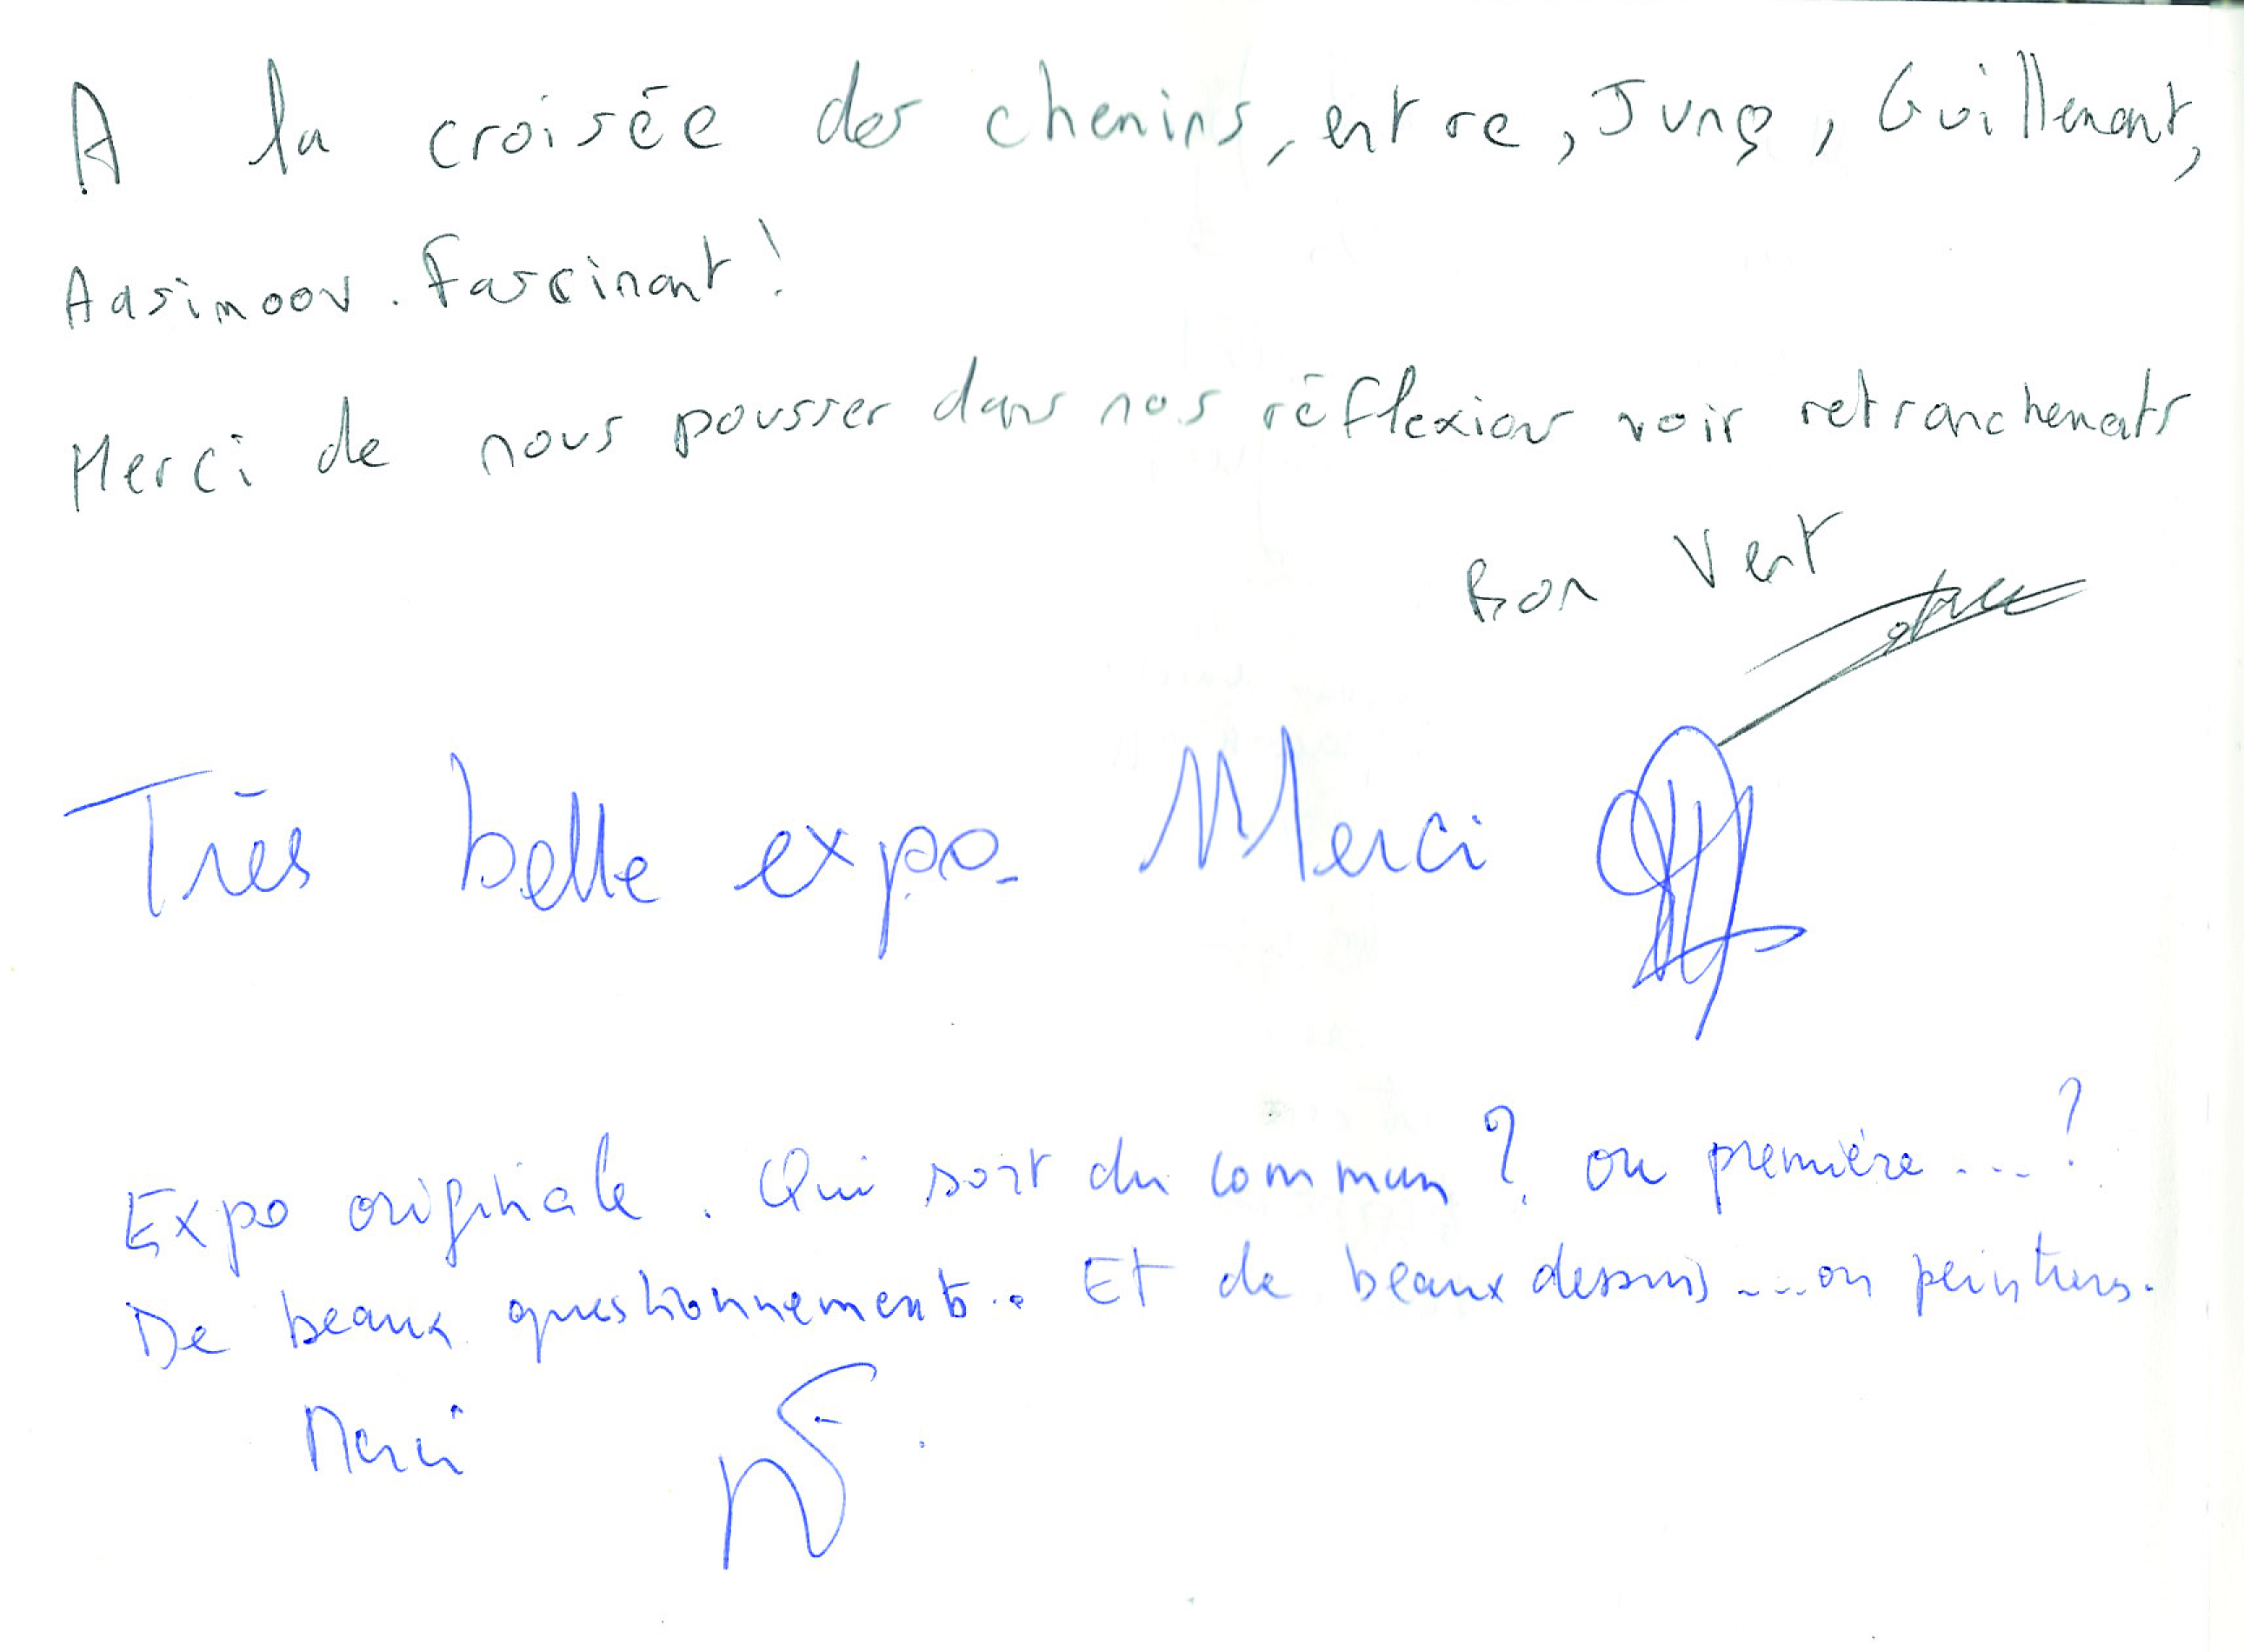 A la croisée des chemins, entre, Jung, Guillemant,
Aasimoov. Fascinant !
Merci de nous pousser dans nos réflexions voir retranchements
Bon Vent
Très belle expo. Merci
Expo originale. Qui sort du commun ? ou première ... ?
De beaux questionnements.. Et de beaux dessins ... ou peintures.
Merci